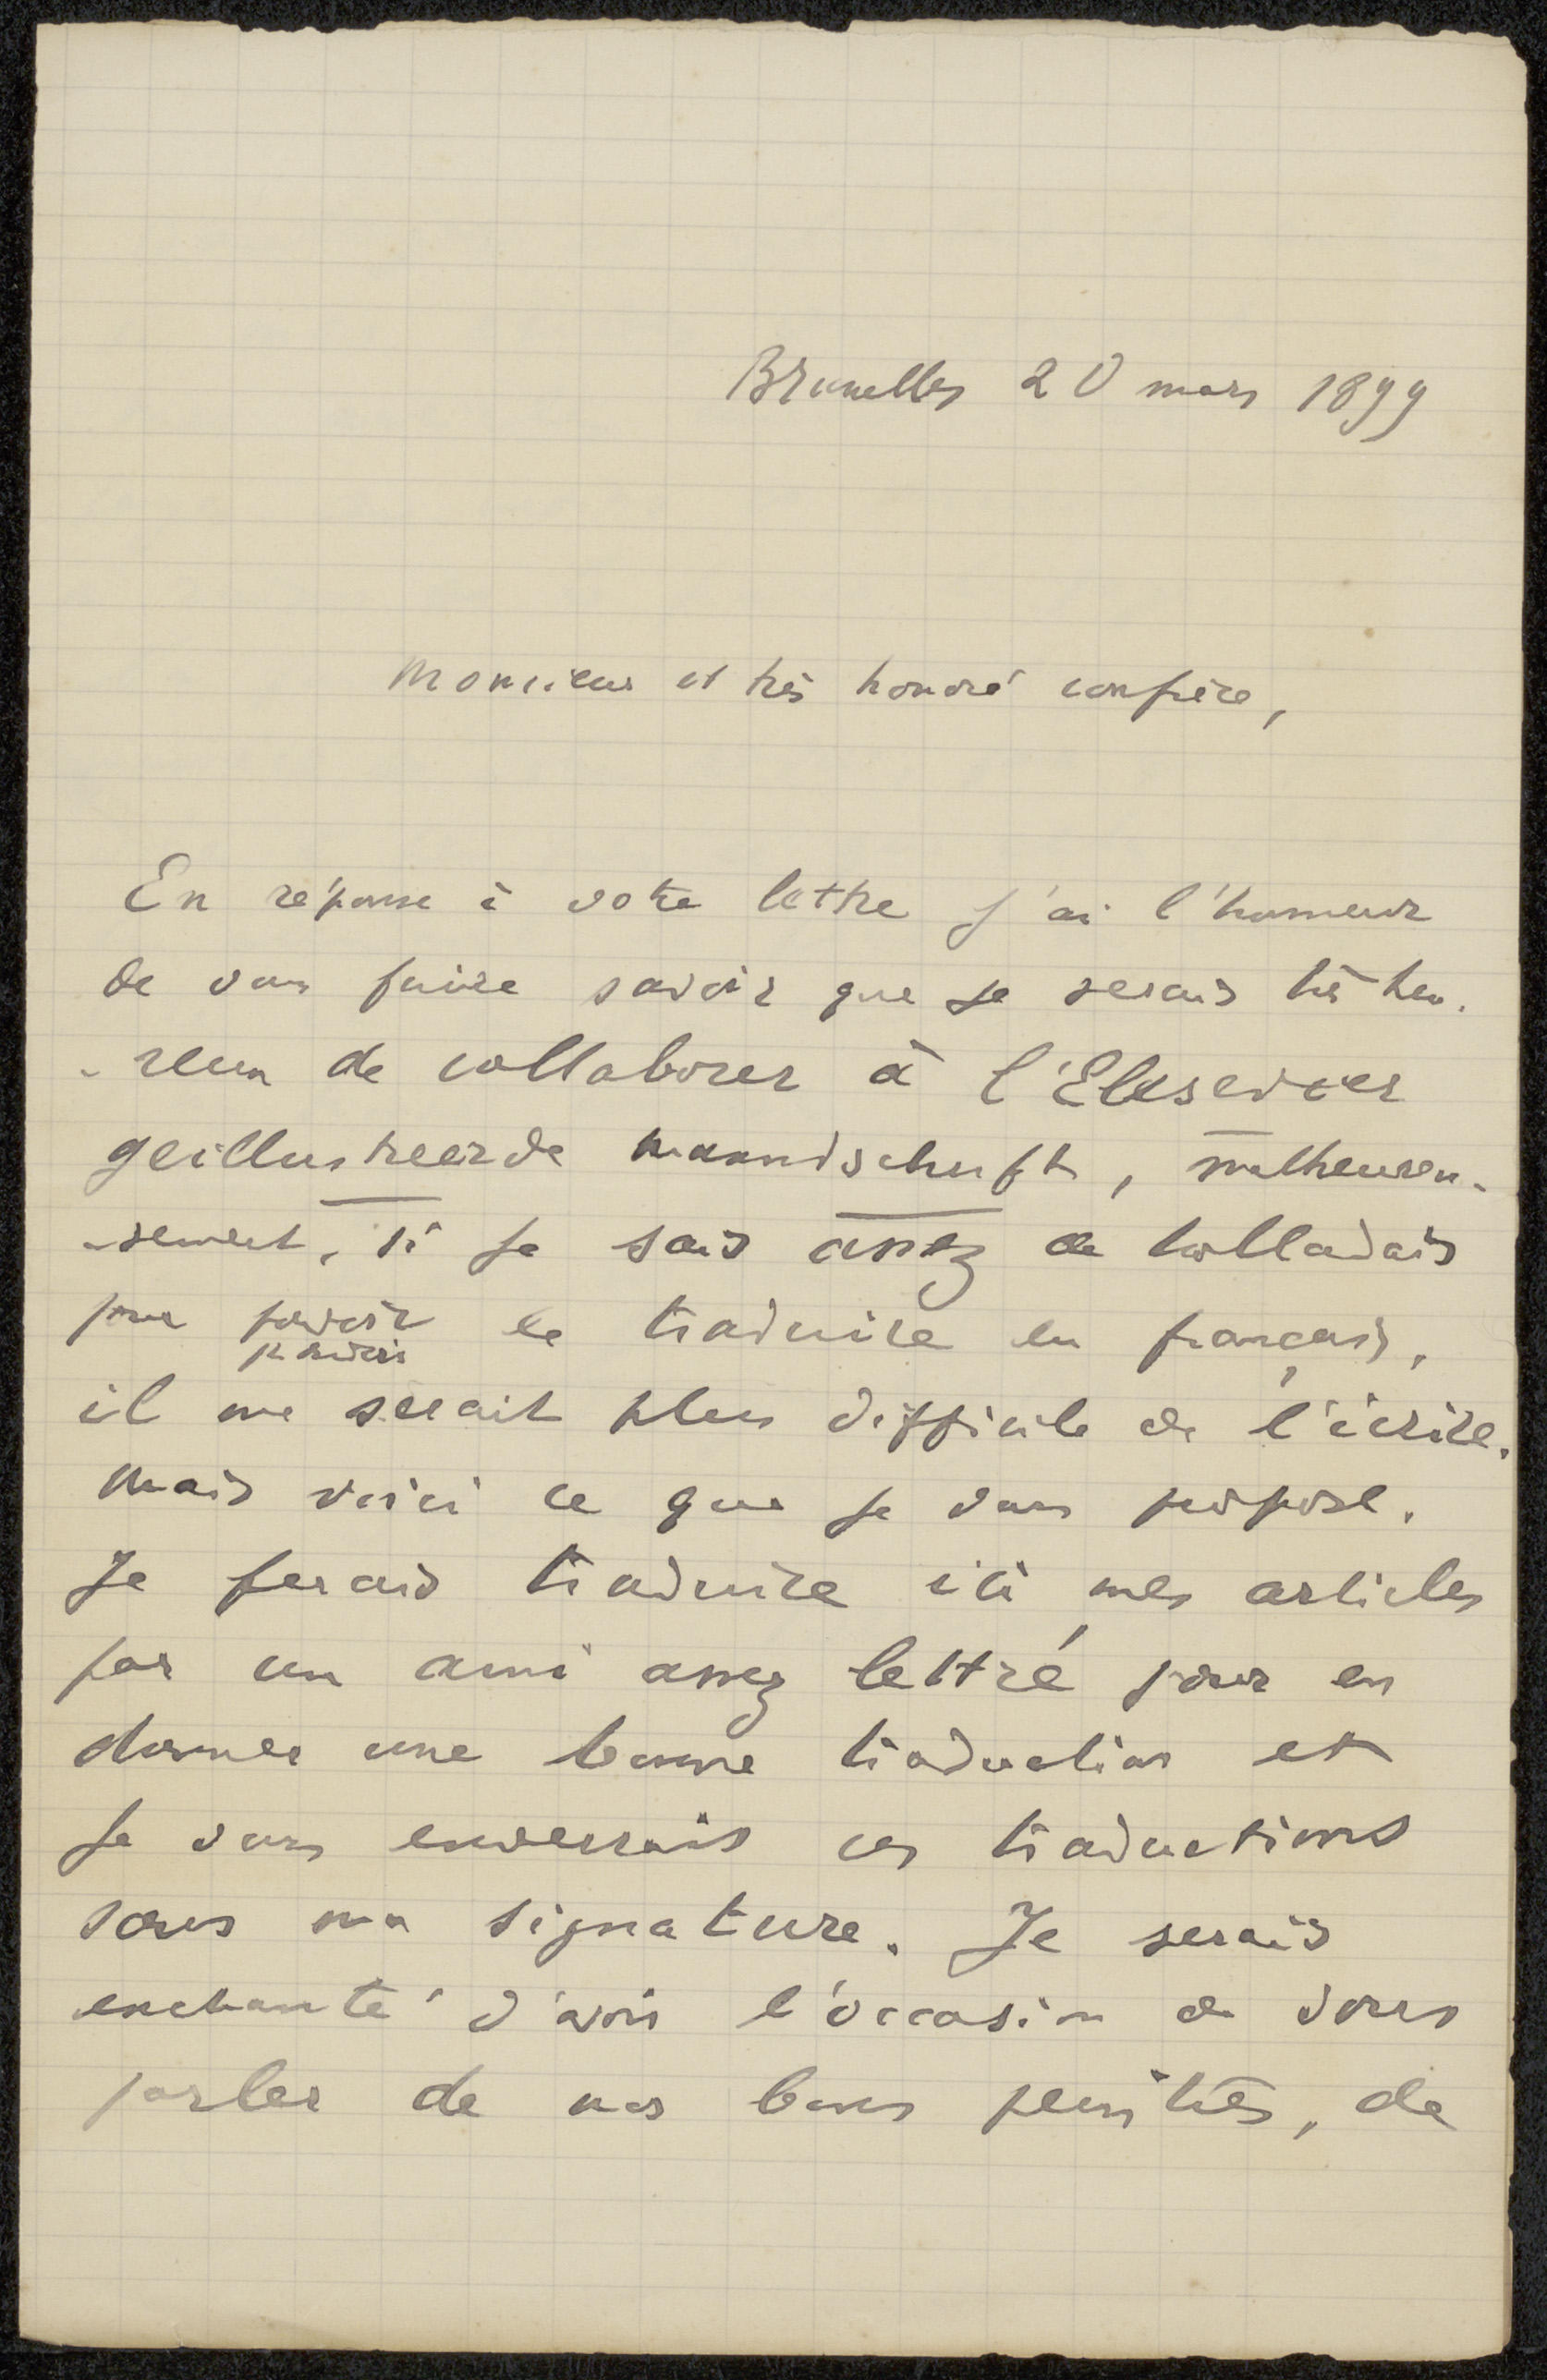 Bruxelles 20 mars 1899
Monsieur et très honoré confrère,
En réponse à votre lettre j'ai l'honneur
de vous faire savoir que je serais très heu-
-reux de collaborer à l'Elesevier
geillustreerde maandschrift, malheureu-
-sement, si je sais assez de hollandais
pour pouvoir le traduire en français,
pouvoir
il me serait plus difficile de l'écrire.
Mais voici ce que je vous propose.
Je ferais traduire ici mes articles
par un ami assez lettré pour en
donner une bonne traduction et
je vous enverrais ces traductions
sous ma signature. Je serais
enchanté d'avoir l'occasion de vous
parler de nos bons peintres, de